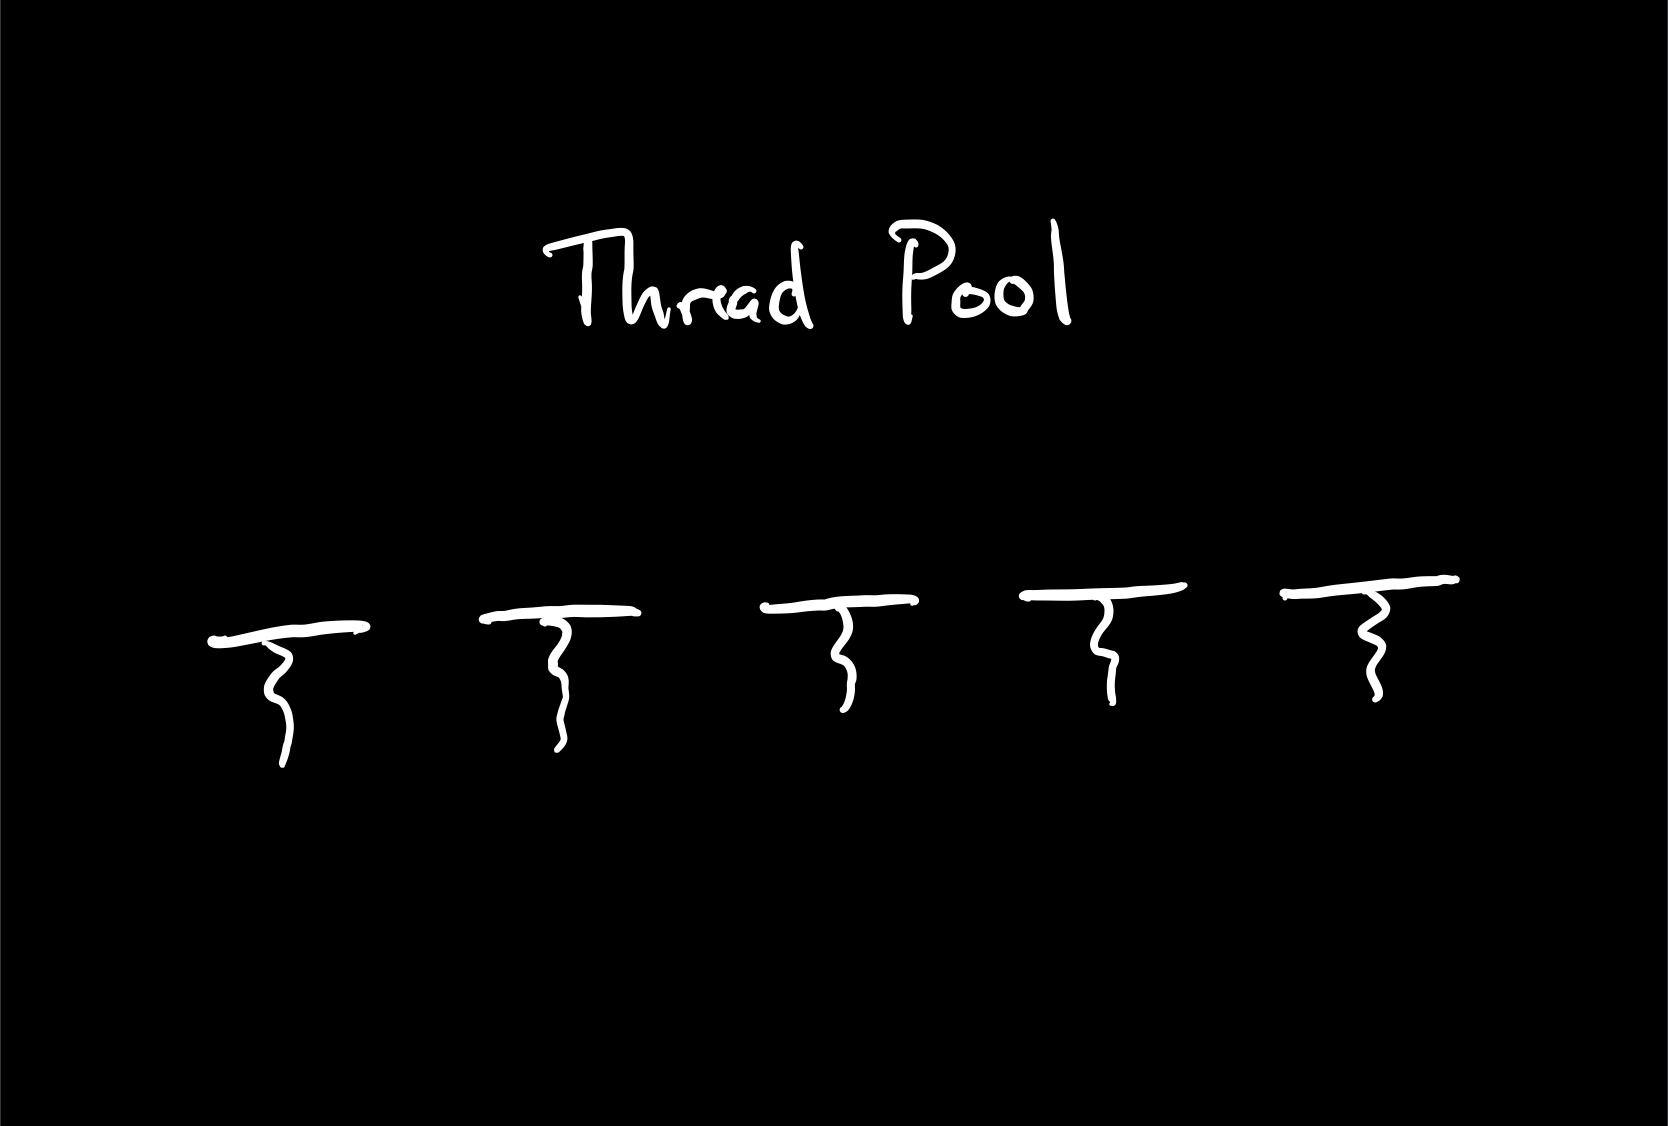 Thread Pool